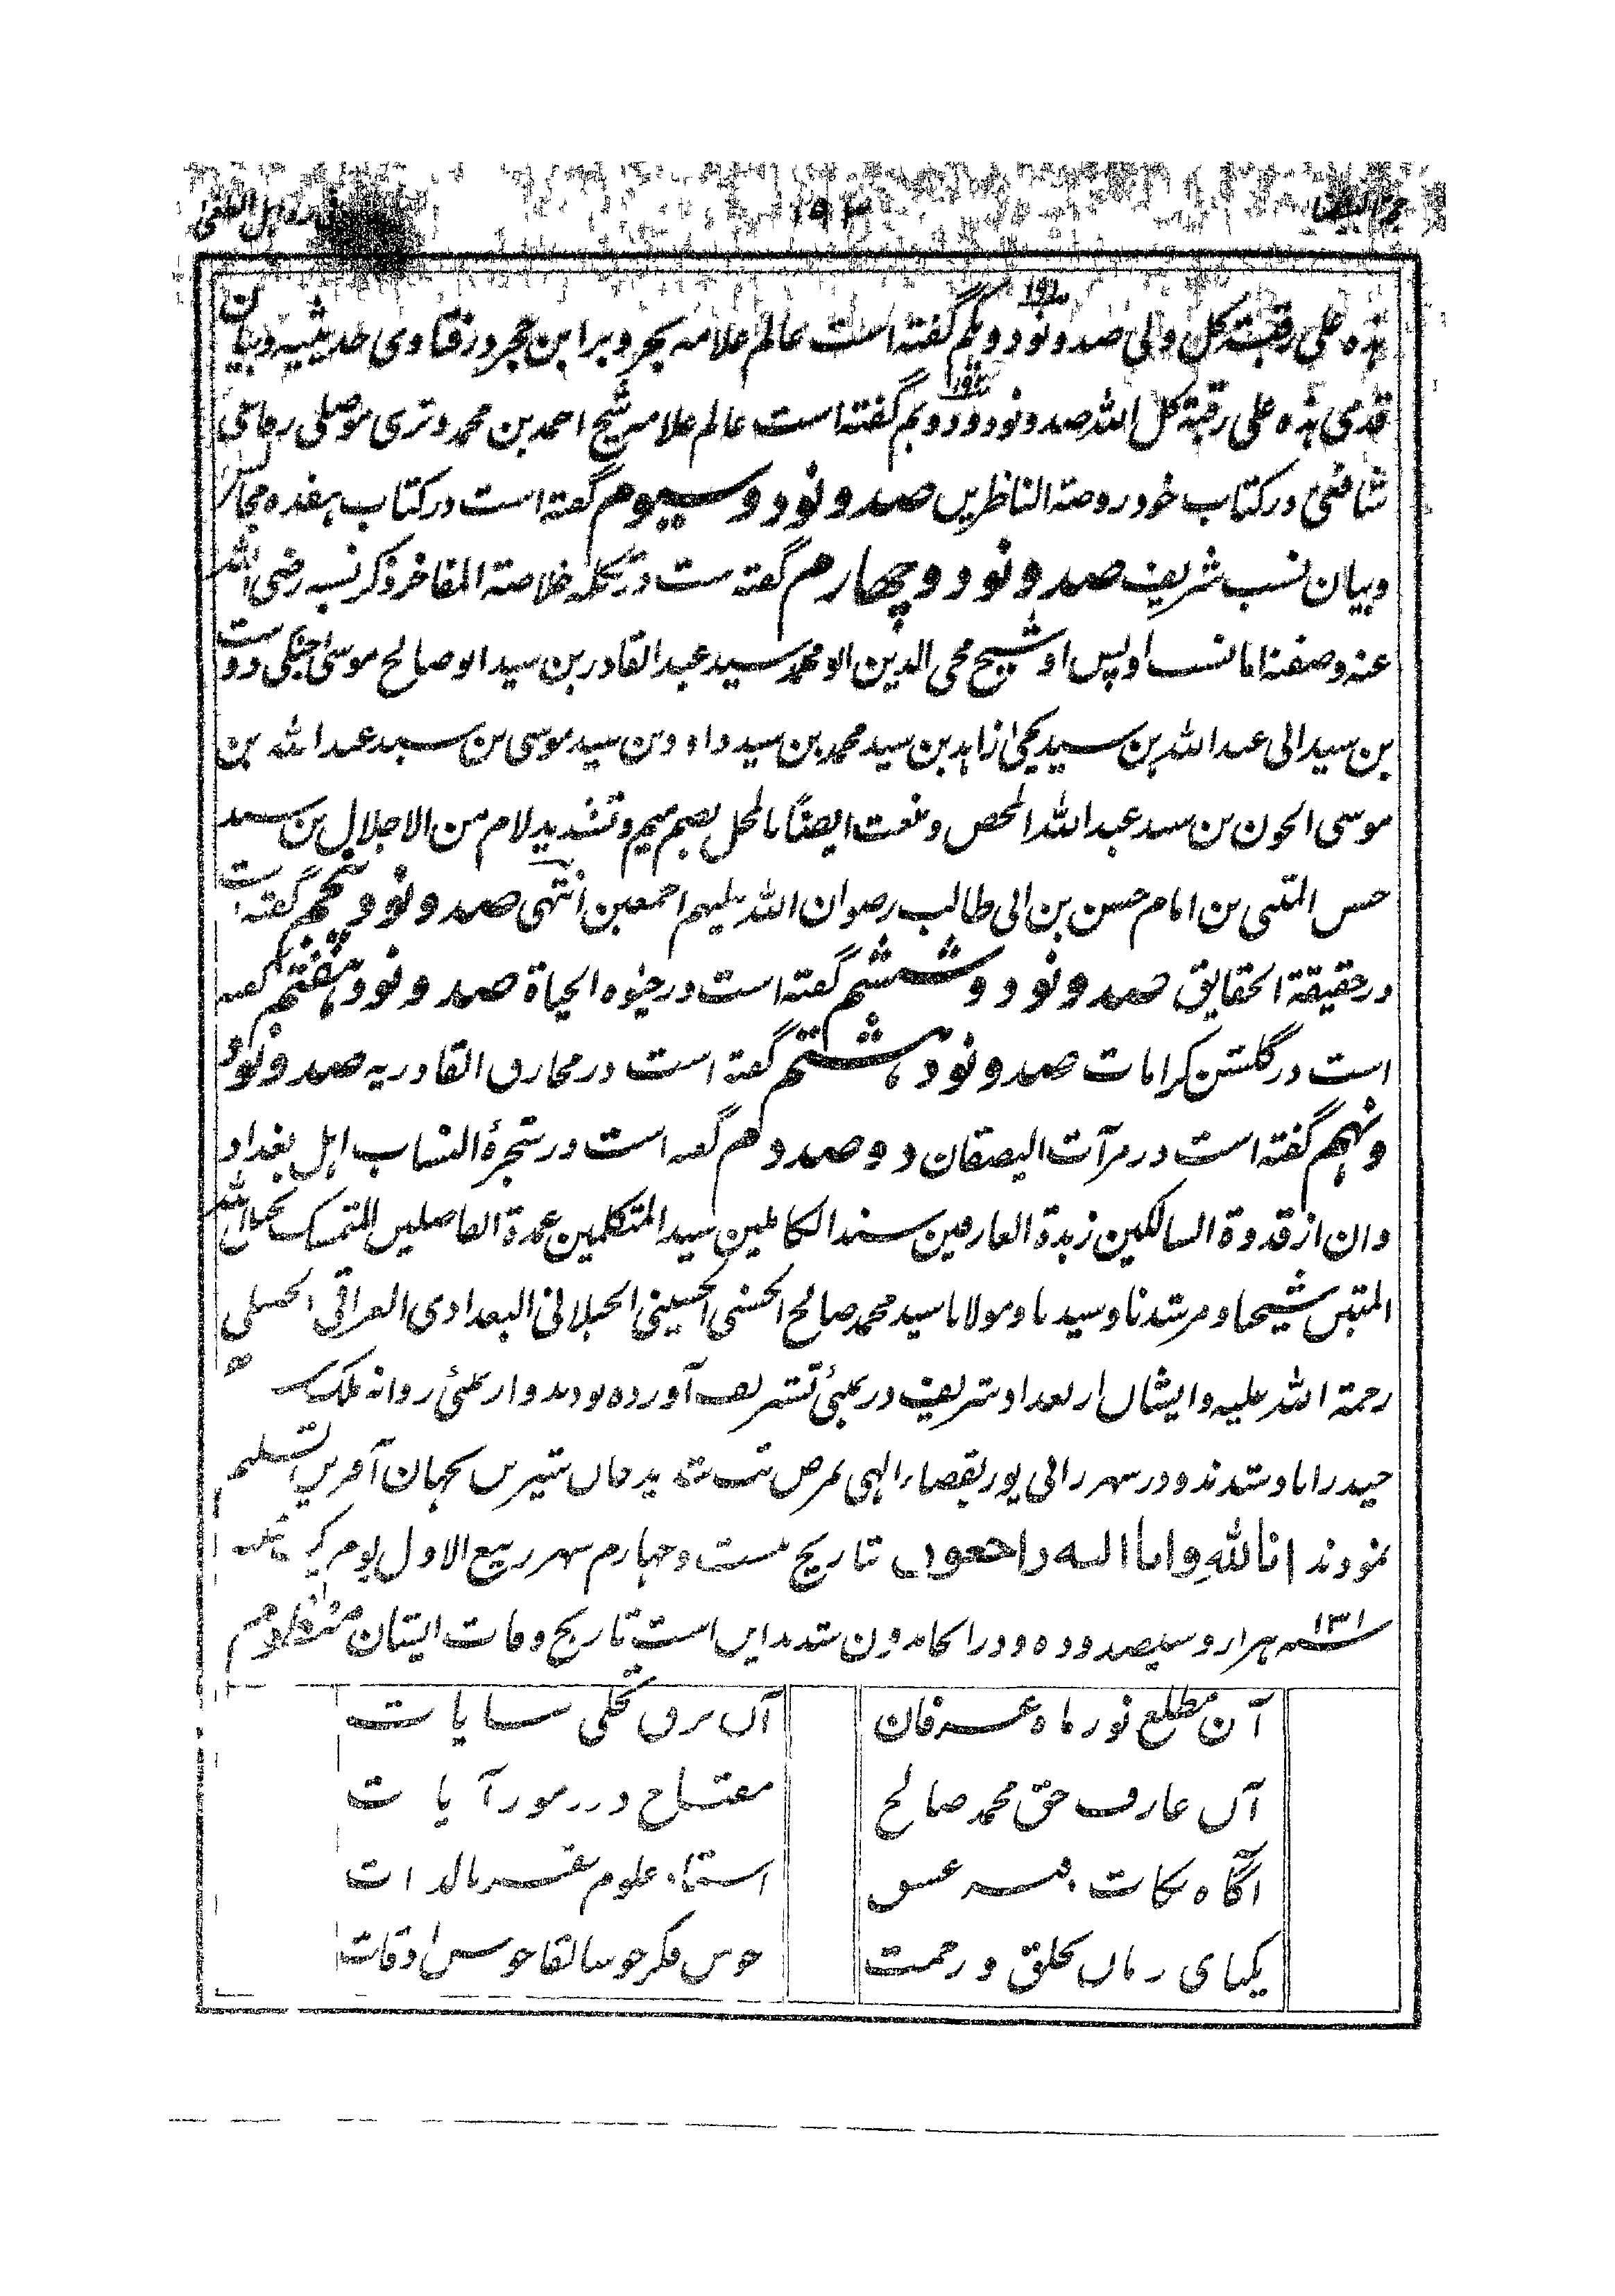 هذه علی رقبة کل ولی صد و نود و یکم گفته است عالم علامه بحر و بر ابن حجر در فتاوی حدیثیه و بیان
قدمی هذه علی رقبة کل الله صد و نود و دویم گفته است عالم علامه شیخ احمد بن محمد وتری موصلی رفاعی
شافعی در کتاب خود روضة الناظرین صد و نود و سیوم گفته است در کتاب هفده مجالس
و بیان نسب شریف صد و نود و چهارم گفته ست در تکمله خلاصة المفاخر ذکر نسبه رضی الله
عنه وصفته اما نسب او پس او شیخ محی الدین ابو محمد سید عبد القادر بن سید ابو صالح موسی جنگی دوست
بن سید ابی عبد الله بن سید یحیی زاهد بن سید محمد بن سید داود بن سید موسی بن سید عبد الله بن
موسی الجون بن سید عبد الله المحض و نعت ایضاً بالمجل بضم میم و تشدید لام من الاجلال بن سید
حسن المثنی بن امام حسن بن ابی طالب رضوان الله علیهم اجمعین انتهی صد و نود و پنجم گفته است
در حقیقة الحقایق صد و نود و ششم گفته است در حیٰوه الحیاة صد و نود و هفتم گفته
است در گلشن کرامات صد و نود و هشتم گفته است در مخارق القادریه صد و نود
و نهم گفته است در مرآت دو صدم گفته است در شجرۀ النساب اهل بغداد
وان از قدوة السالکین زبدة العارفین سند الکاملین سید المتکلمین عمدة الفاضلین المتمسک بحبل الله
المتین شیخنا و مرشدنا و سیدنا و مولانا سید محمد صالح الحسنی الحسینی الجیلانی البغدادی العراقی الحنبلی
رحمة الله علیه و ایشان از بغداد شریف در بمبئی تشریف آورده بودند و از بمبئی روانه ملک
حیدراباد شدند و در شهر رائی پور بقضاء الهی بمرض تپ شدید جان شیرین بجهان آفرین تسلیم
نمودند انا لله وانا الیه راجعون تاریخ بست و چهارم شهر ربیع الاول یوم
۱۳۱ سنه هزار و سیصد و ده و در انجا مدفون شدند این است تاریخ وفات ایشان منظوم
آن مطلع نور ماه عرفان آن برق تجلی
آن عارف حق محمد صالح مفتاح در رموز آیات
آگاه نکات استاد علوم
یکتای زمان بخلق و رحمت خوش فکر خوش اوقات